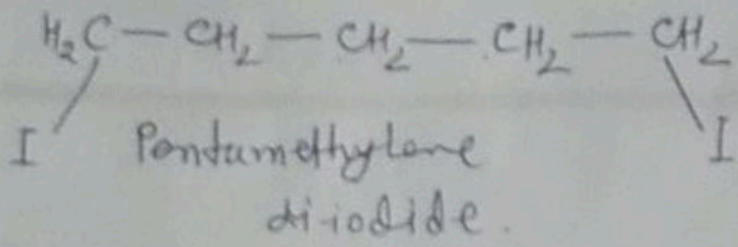 H₂C — CH₂ — CH₂ — CH₂ — CH₂
I Pentamethylene I
di-iodide.